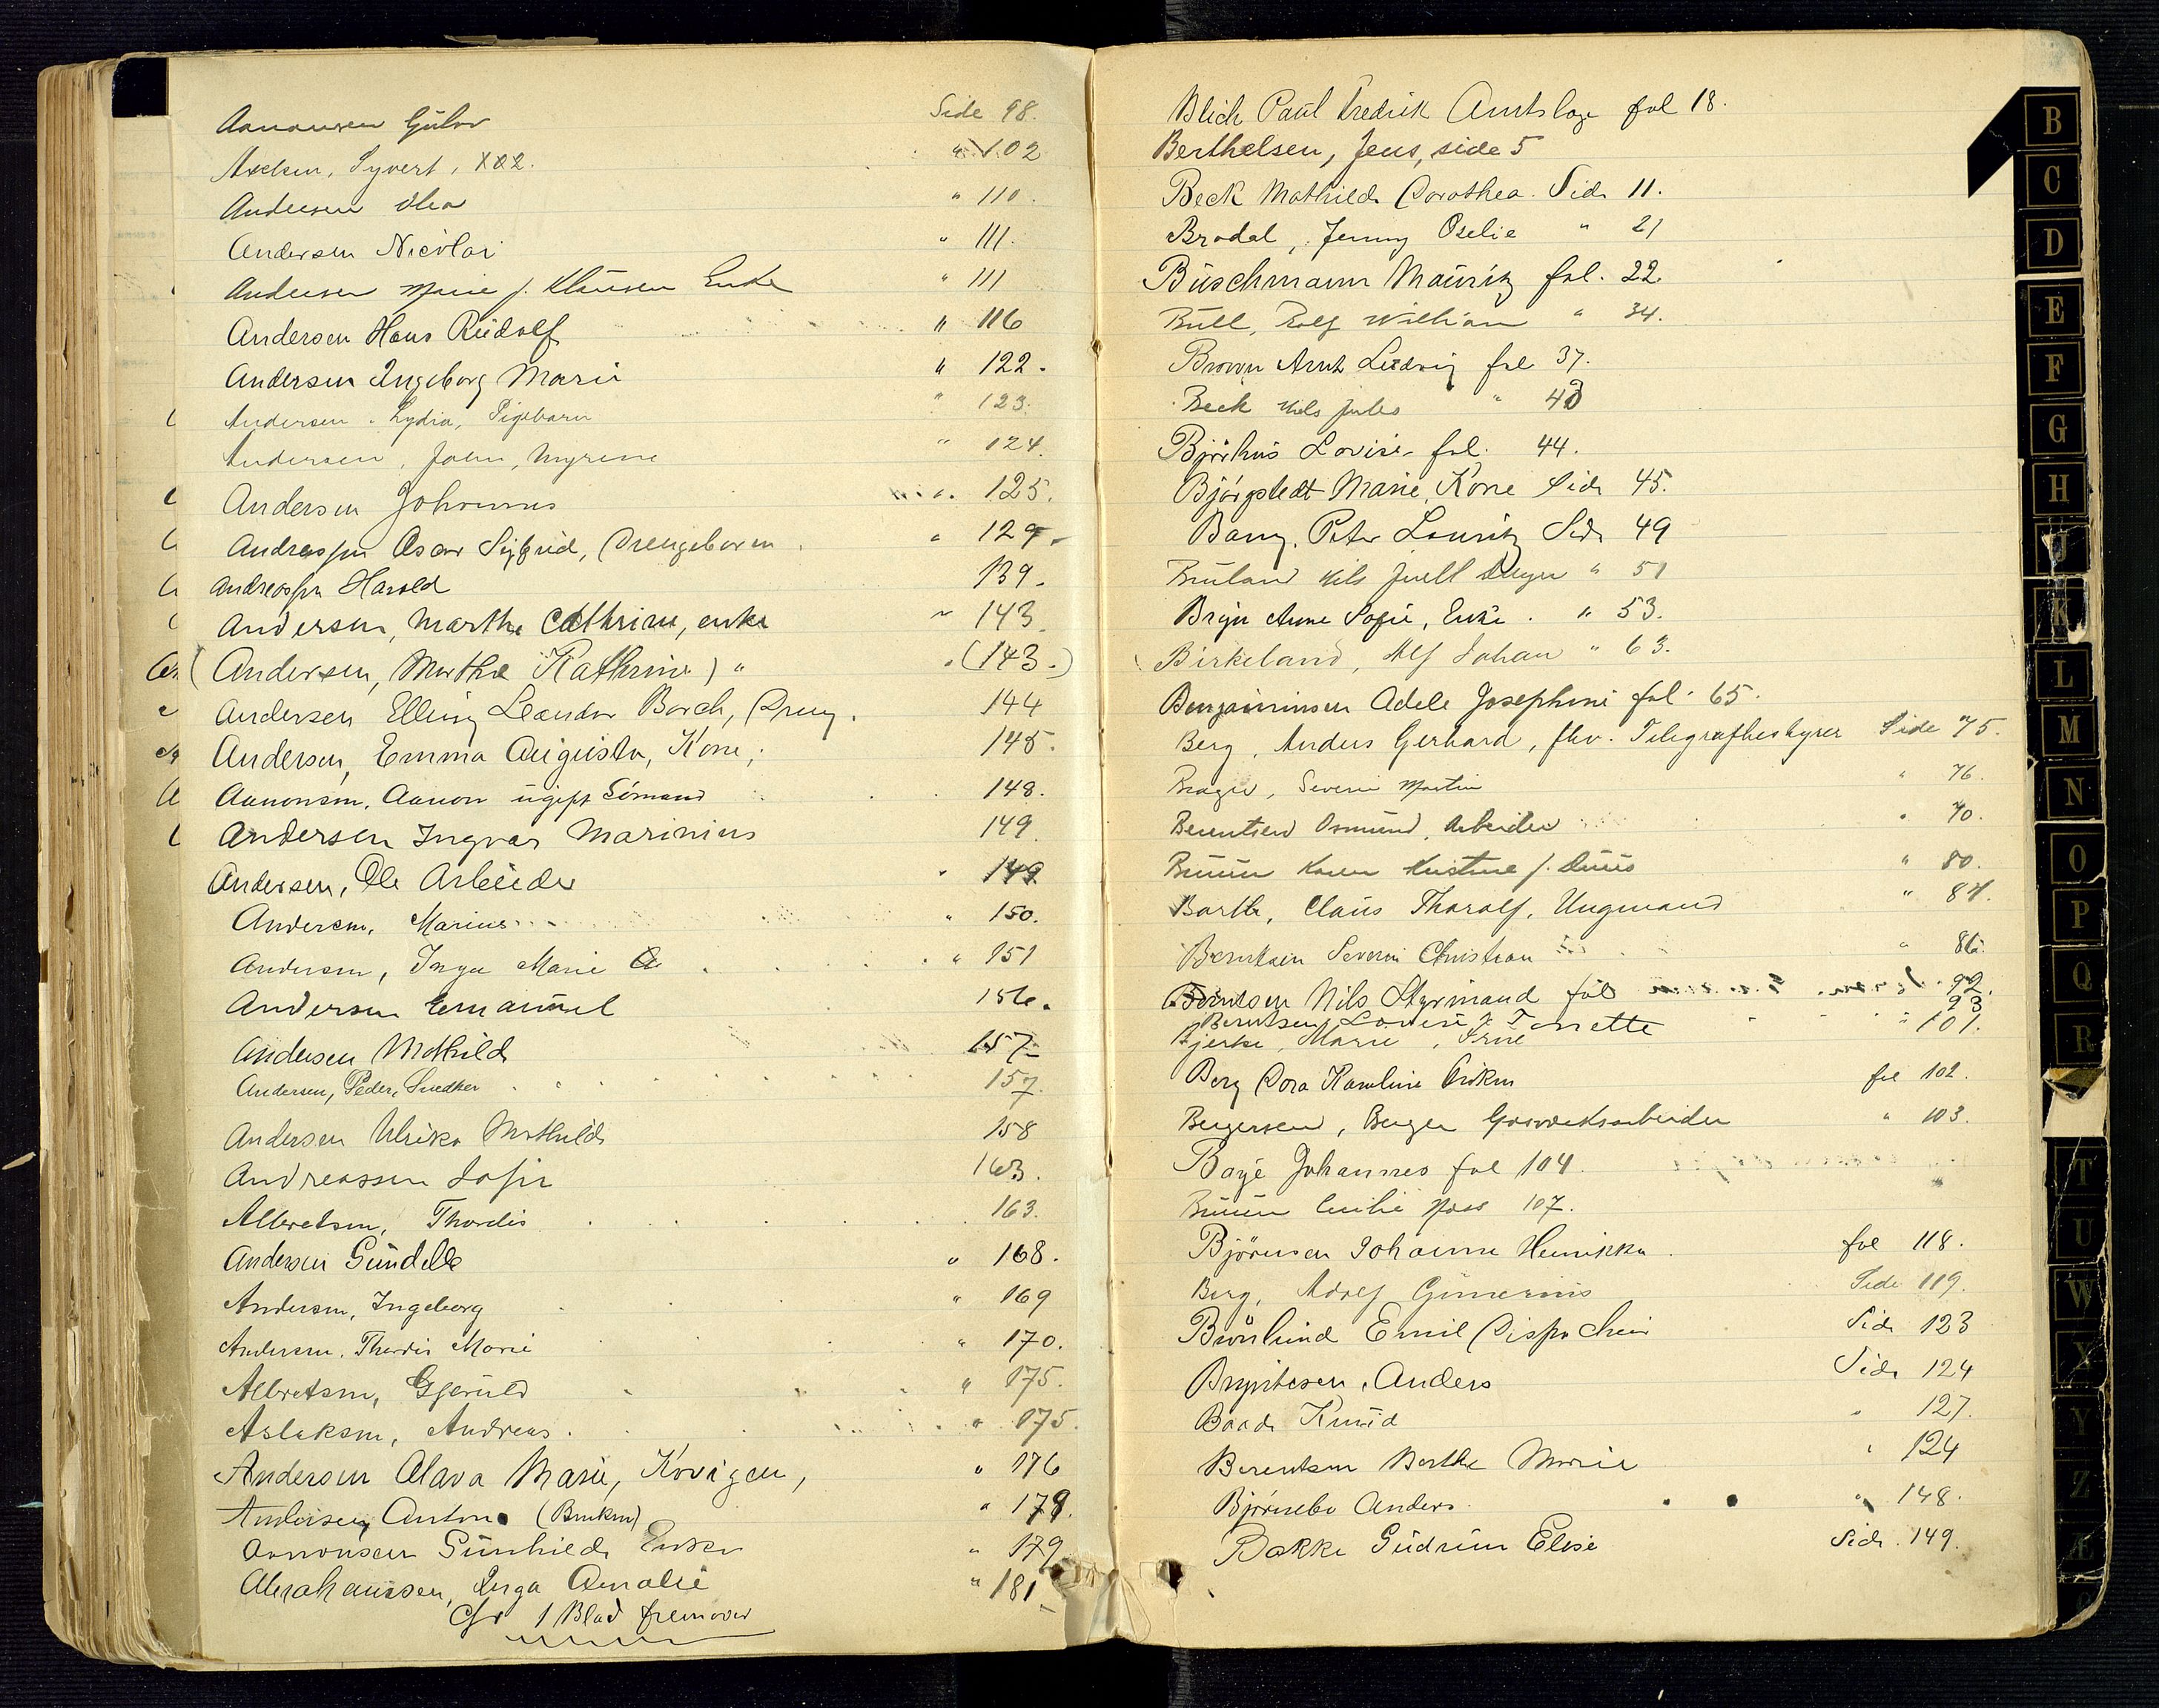 Aanonsen Gulov Side 98.
Axelsen, Syvert, 102. " 102
Andersen Olea " 110.
Andersen Nicolai " 111.
Andersen Marie f. Klausen Enke " 111
Andersen Hans Rudolf " 116
Andersen Ingeborg Marie " 122.
Andersen. Lydia, Pigebarn " 123.
Andersen, John, Myrene " 124.
Andersen Johannes " 125.
Andreassen Oscar Sigfrid, Drengebarn " 129.
Andreassen Harald 139.
Andersen, Marthe Cathrine, enke " 143
(Andersen, Marthe Kathrine) " " (143.)
Andersen Elling Leander Borch, Dreng. 144
Andersen, Emma Augusta, Kone, 145.
Aanonsen, Aanon ugift Sömand 148.
Andersen Ingvar Marinius 149
Andersen, Ole Arbeider " 149
Andersen, Marius " 150.
Andersen, Inga Marie " 151
Andersen Emanuel 156.
Andersen Mathilde 157
Andersen, Peder, Snedker 157.
Andersen Ulrika Mathilde 158
Andreassen Sofie 163.
Albretsen, Thordis 163.
Andersen Gundelle " 168.
Andersen, Ingeborg " 169
Andersen, Thordis Marie " 170.
Albretsen, Gjeruld " 175.
Aslaksen, Andreas. " 175.
Andersen Olava Marie, " 176
Andersen, Anton (Bruker) " 178.
Aanonsen Gunhilde Enke " 179
Abrahamsen, Inga Amalie " 181
Cfr 1 Blad fremover
Blich Paul Fredrik Amtslæge fol 18.
Berthelsen, Jens, side 5
Beck Mathilde Dorothea. Side 11.
Brodal, Jenny Oselie " 21
Buschmann Mauritz fol. 22.
Bull, Rolf William " 34.
Brown Arnt Ludvig fol 37.
Beck Nils Jules " 43
Björhus Lovise fol. 44.
Björgstedt Marie, Kone Side 45.
Bang. Peter Lauritz Side 49
Nils Juell " 51
Bryn Anne Sofie, Enke. " 53.
Birkeland, Alf Johan " 63.
Benjaminsen Adele Josephine fol. 65.
Berg, Anders Gerhard, fhv. Telegrafbestyrer Side 75.
Severin Martin " 76.
Berentsen Osmund, Arbeider " 70.
Bruun Karen Kristine f. Duus " 80.
Barth, Claus Tharalf, Ungmand " 84.
Berntsen Severin Christian " 86.
Berntsen Nils Styrmand fol 92.
Berntsen, Lovise Tonette 93
Bjerke, Marie, Frue " 101.
Berg Dora Karoline Enken fol 102.
Bergersen, Berger Gasverksarbeider " 103.
Baye Johannes fol 104.
Bruun Cecilie 107.
Björnsen Johanne Henrikke fol 118.
Berg, Adolf Gunerius Side 119.
Emil Dispacheur Side 123
Anders Side 124
Baade Knud " 127.
Berentsen Berthe Marie " 124
Björnebo Anders. " 148.
Bakke Gudrun Elise Side 149.
B
C
D
E
F
G
H
J
K
L
M
N
O
P
Q
R
T
U
W
X
Y
Z
Æ